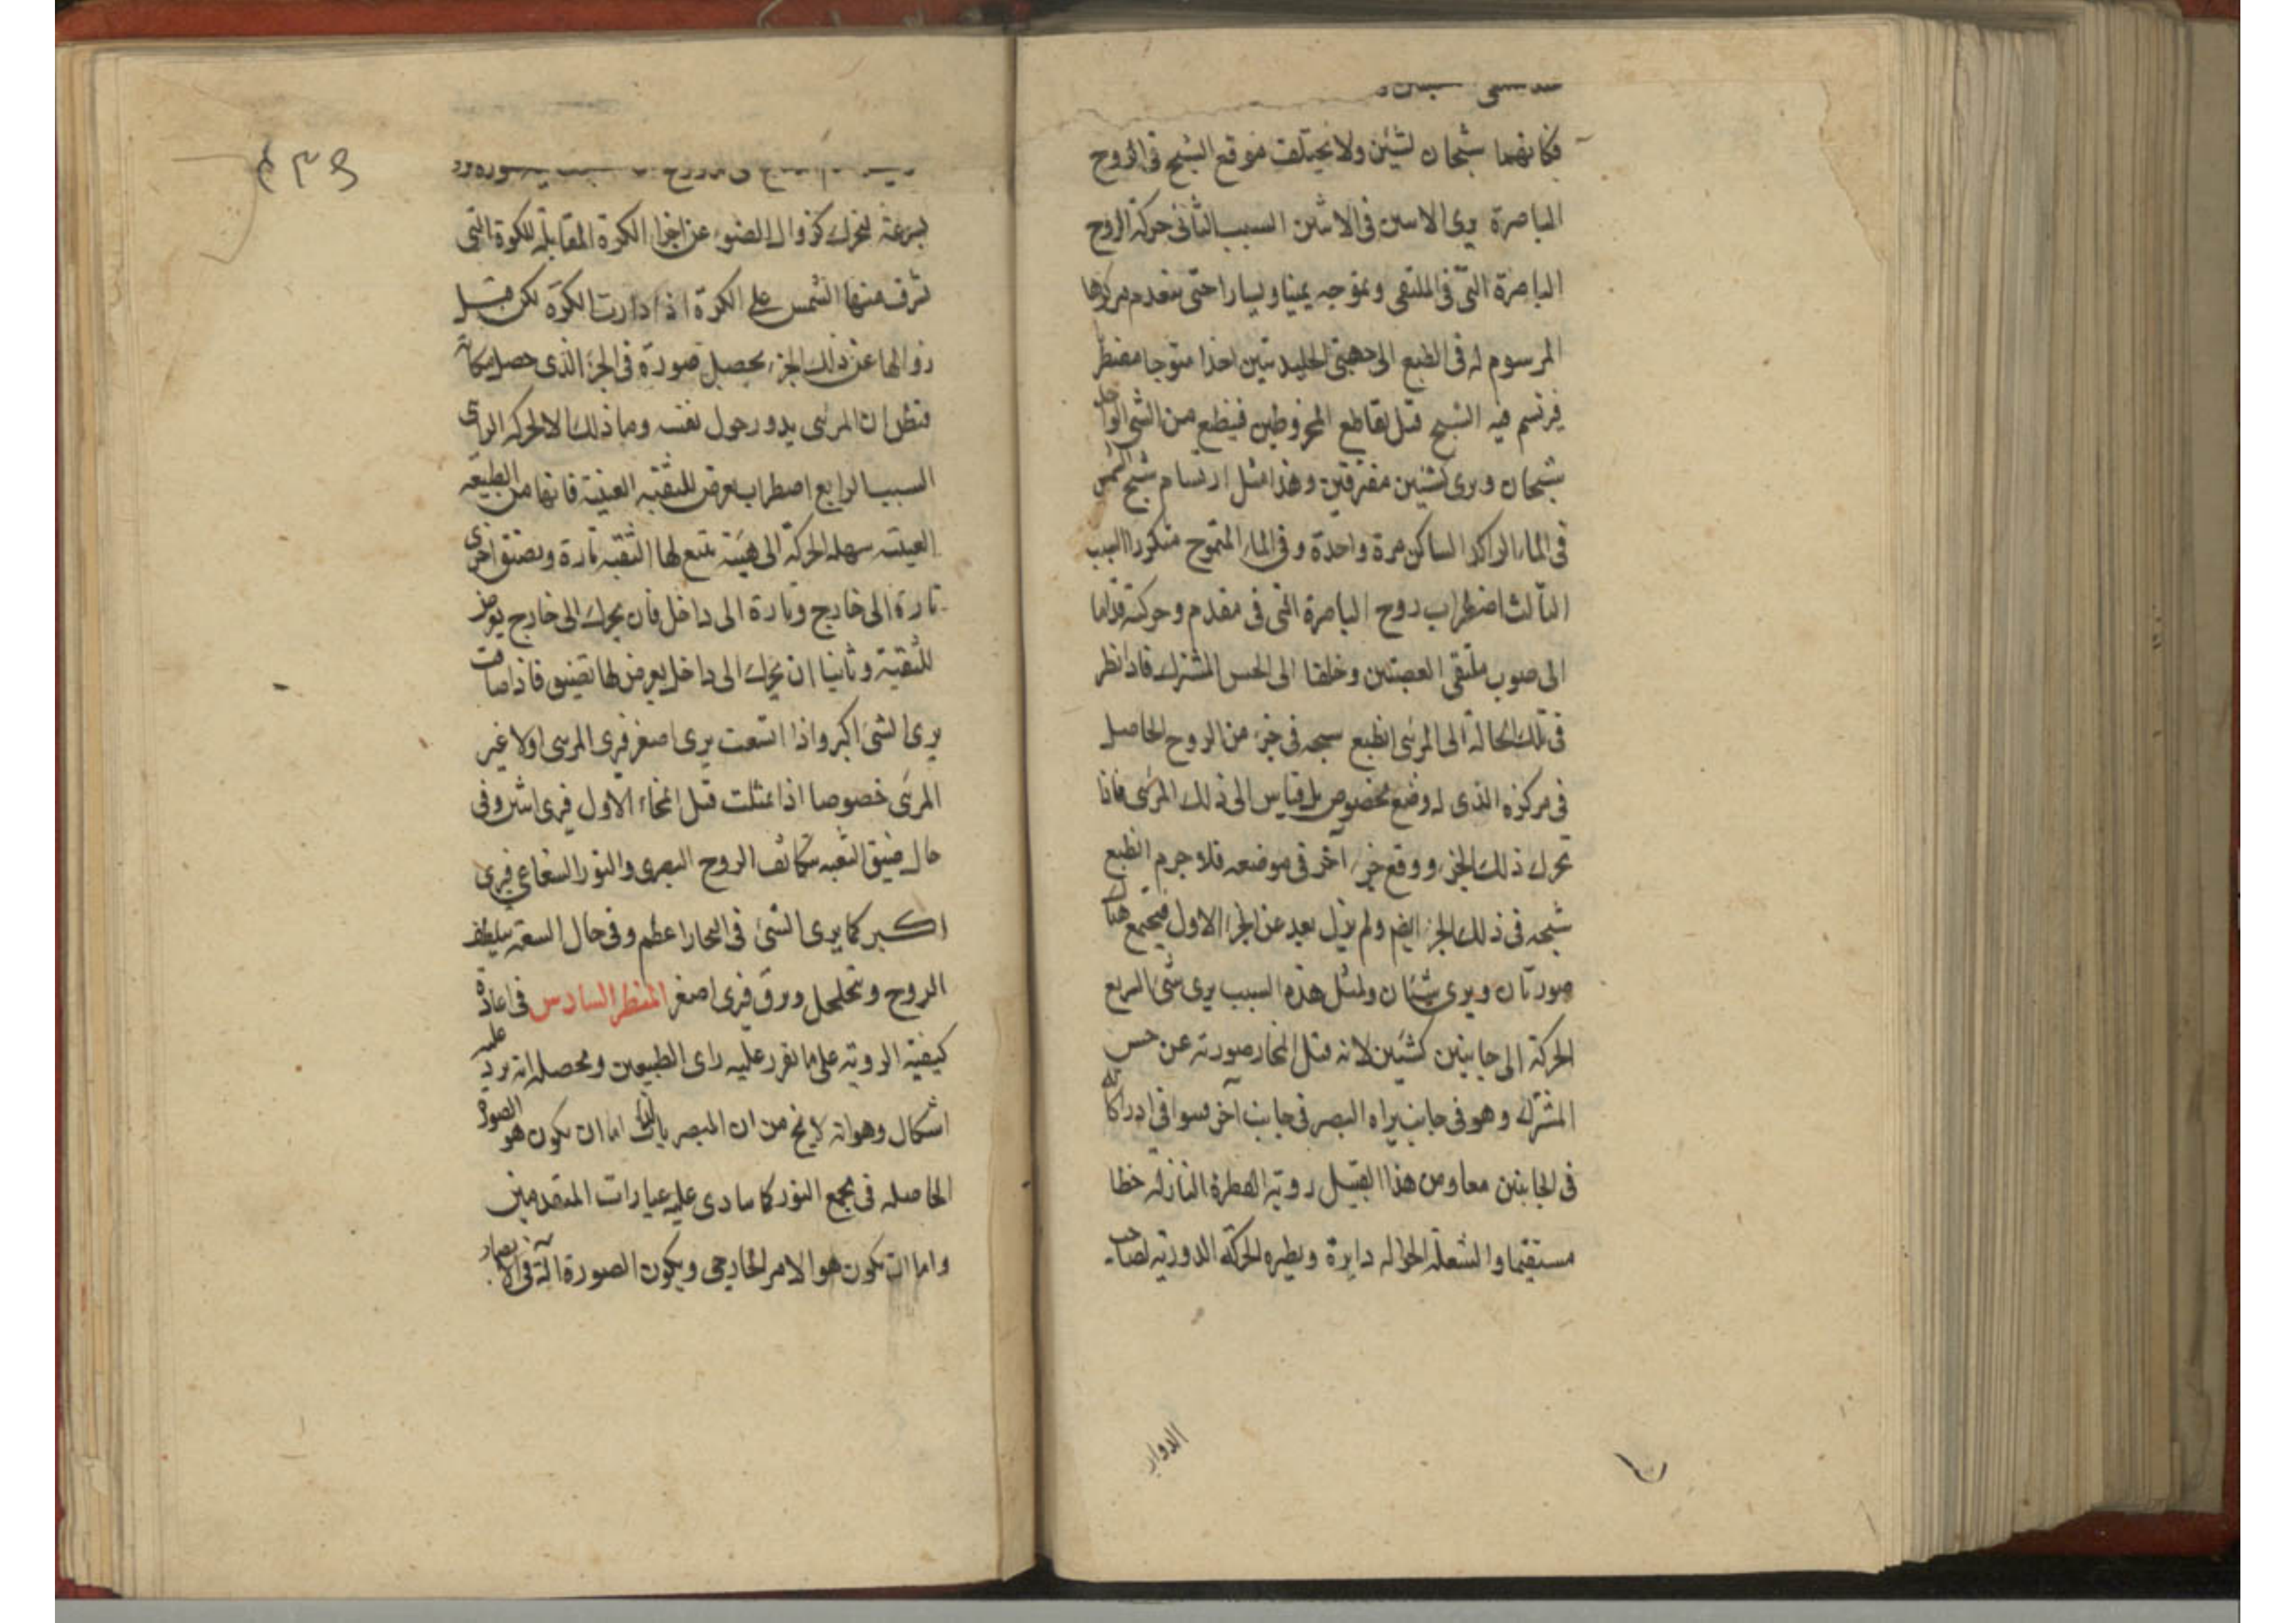 فكانهما شبحان لشيئين ولا يختلف موقع الشبح فى الروح
الباصرة يرى الاسن فى الاثنين السبب الثانى حركة الروح
الباصرة التى فى الملتقى وتموجه يمينا ويسارا حتى يتقدم مركزها
المرسوم له فى الطبع الى جهتى الجليديتين اخذا متوجا مضطر
فيرتسم فيه الشبح قبل تقاطع المخروطين فينطبع من الشى الواحد
شبحان ويرى كشيئين مفترقين وهذا مثل ارتسام شبح الشمس
فى الماء الراكد الساكن مرة واحدة وفى الماء المتموج متكررا السبب
الثالث اضطراب روح الباصرة التى فى مقدم وحركته قداما
الى صوب ملتقى العصبتين وخلفا الى الحس المشترك فاذا نظر
فى تلك الحالة الى المرئى انطبع شبحه فى جزء من الروح الحاصل
فى مركزه الذى له وضع مخصوص بل قياس الى ذلك المرئى فاذا
تحرك ذلك الجزء ووقع جزء آخر فى موضعه فلا جرم انطبع
شبحه فى ذلك الجزء ايضم ولم يزل بعد عن الجزء الاول فيجتمع هناك
صورتان ويرى شيئان ولمثل هذه السبب يرى شئ السريع
الحركة الى جانبين كشيئين لانه قبل انمحار صورته عن حس
المشترك وهو فى جانب يراه البصر فى جانب آخر فتوافى ادراكاته
فى الجانبين معا ومن هذا القبيل روية القطرة النازلة خطا
مستقيما والشعلة الجوالة دايرة ونظيره الحركة الدورية لصاحب
الدوار
٤٣٩
بسرعة لتحرك كزوال الضوء عن اجزاء الكرة المقابلة للكوة التى
تشرف منها الشمس على الكرة اذا دارت الكرة لكن قبل
زوالها عن ذلك الجزء يحصل صورة فى الجزء الذى حصل مكانه
فتظن ان المرئى يدور حول نفسه وما ذلك الا لحركة الرائى
السبب الرابع اضطراب يعرض للثقبة العينية فانها من الطبيعة
العينية سهلة الحركة الى هيئة تتسع لها الثقبة تارة وتضيق اخرى
تارة الى خارج وتارة الى داخل فان تحرك الى خارج يعرض
للثقبة وثانيا ان تحرك الى داخل يعرض لها تضيق فاذا ضاقت
يرى الشئ اكبر واذا اتسعت يرى اصغر فيرى المرئى اولا غير
المرئى خصوصا اذا تمثلت قبل انمحاء الاول فيرى اثنين وفى
حال ضيق الثقبة تتكاثف الروح البصرى والنور الشعاعى فيرى
اكبر كما يرى الشئ فى البخار اعظم وفى حال السعة يتلطف
الروح ويتخلخل ويرق فيرى اصغر المنظر السادس فى اعادة
كيفية الروية على ما تقرر عليه راى الطبيعيين ومحصله انه يرد عليه
اشكال وهو انه لايخ من ان المبصر بالذات اما ان يكون هو الصورة
الحاصله فى مجمع النور كما ينادى عليه عبارات المتقدمين
واما ان يكون هو الامر الخارجى ويكون الصورة آلة فى الابصار